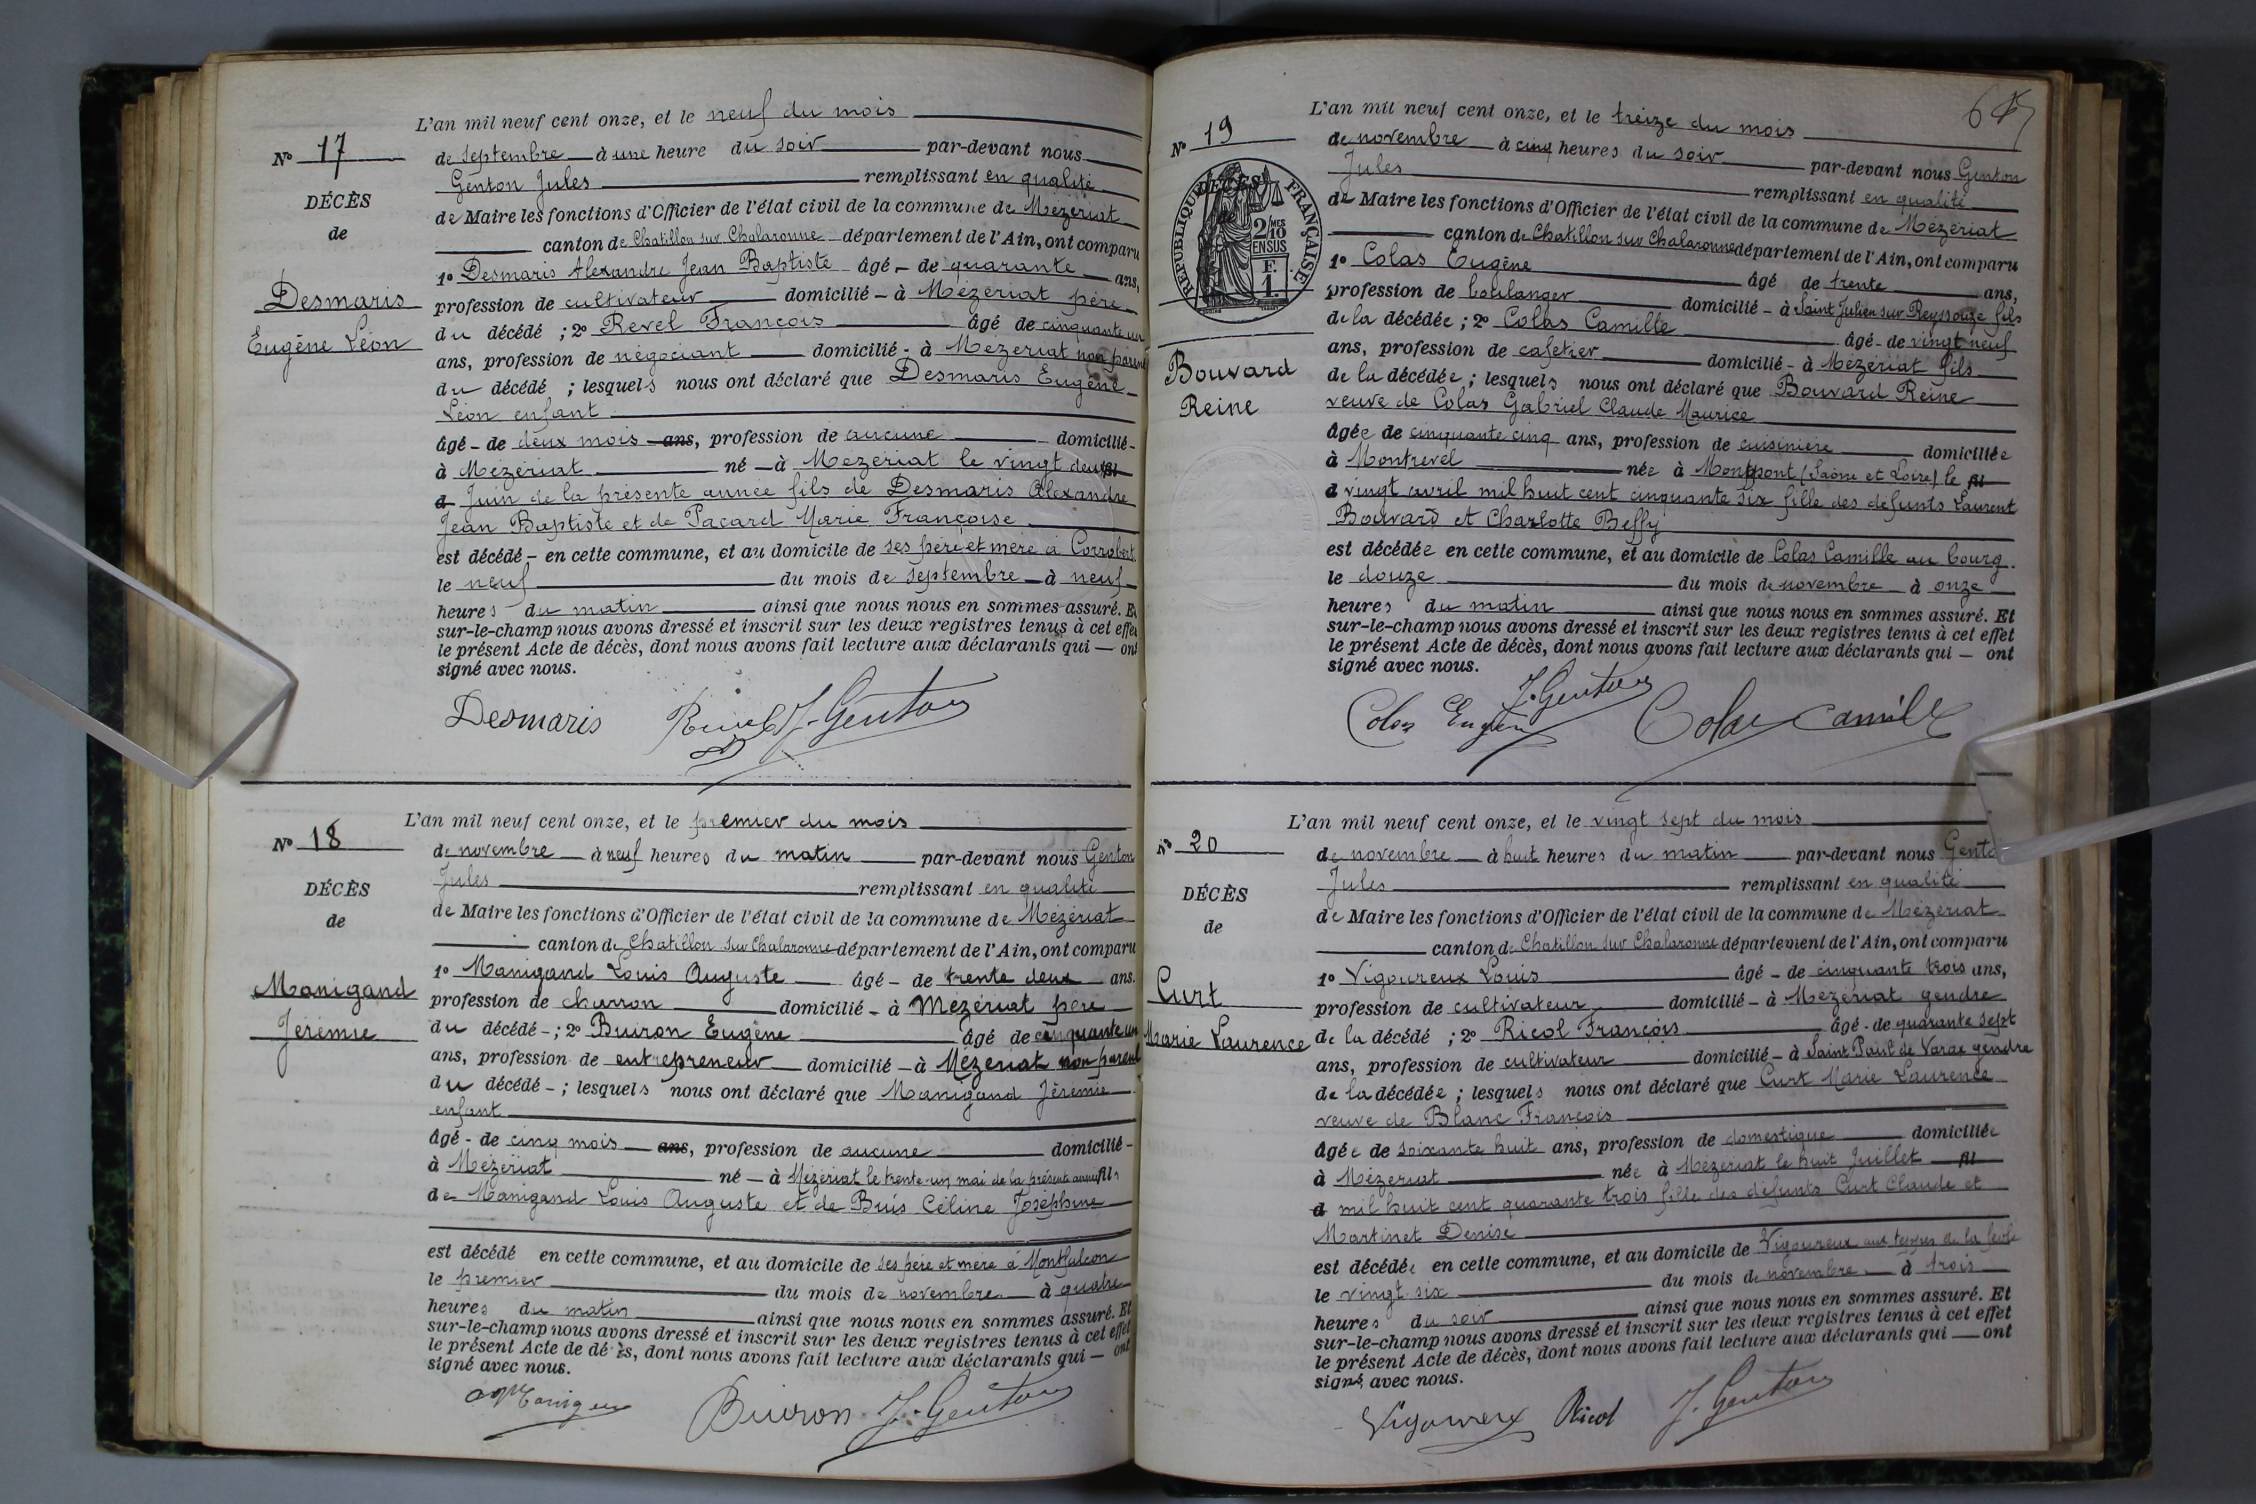 L'an mil neuf cent onze, et le neuf du mois
N° 17
de septembre à une heure du soir par-devant nous
Genton Jules remplissant en qualité
DÉCÈS
de
de Maire les fonctions d'Officier de l'état civil de la commune de Mézériat
canton de Chatillon sur Chalaronne département de l'Ain, ont comparu
1° Desmaris Alexandre Jean Baptiste âgé de quarante ans,
Desmaris
Eugène Léon
profession de cultivateur domicilié à Mézériat père
du décédé ; 2° Revel François âgé de cinquante un
ans, profession de négociant domicilié à Mézériat non parent
du décédé ; lesquels nous ont déclaré que Desmaris Eugène
Léon enfant
âgé de deux mois ans, profession de aucune domicilié
à Mézériat né à Mézériat le vingt deux fil
d Juin de la présente année fils de Desmaris Alexandre
Jean Baptiste et de Pacard Marie Françoise
est décédé en cette commune, et au domicile de ses père et mère à Corrobert
le neuf du mois de septembre à neuf
heures du matin ainsi que nous nous en sommes assuré. Et
sur-le-champ nous avons dressé et inscrit sur les deux registres tenus à cet effet
le présent Acte de décès, dont nous avons fait lecture aux déclarants qui ont
signé avec nous.
Desmaris Revel J. Genton
L'an mil neuf cent onze, et le premier du mois
N° 18
de novembre à neuf heures du matin par-devant nous Genton
Jules remplissant en qualité
DÉCÈS
de
de Maire les fonctions d'Officier de l'état civil de la commune de Mézériat
canton de Chatillon sur Chalaronne département de l'Ain, ont comparu
1° Manigand Louis Auguste âgé de trente deux ans.
Manigand
Jérémie
profession de charron domicilié à Mézériat père
du décédé ; 2° Buiron Eugène âgé de cinquante un
ans, profession de entrepreneur domicilié à Mézériat non parent
du décédé ; lesquels nous ont déclaré que Manigand Jérémie
enfant
âgé de cinq mois ans, profession de aucune domicilié
à Mézériat né à Mézériat le trente-un mai de la présente année fils
de Manigand Louis Auguste et de Buis Céline Joséphine
est décédé en cette commune, et au domicile de ses père et mère à Montfalcon
le premier du mois de novembre à quatre
heures du matin ainsi que nous nous en sommes assuré. Et
sur-le-champ nous avons dressé et inscrit sur les deux registres tenus à cet effet
le présent Acte de décès, dont nous avons fait lecture aux déclarants qui ont
signé avec nous.
Buiron J. Genton
L'an mil neuf cent onze, et le treize du mois
N° 19
de novembre à cinq heures du soir par-devant nous Genton
Jules remplissant en qualité
DÉCÈS
RÉPUBLIQUE FRANÇAISE
2/10 MES
EN SUS
F.
1.
de Maire les fonctions d'Officier de l'état civil de la commune de Mézériat
canton de Chatillon sur Chalaronne département de l'Ain, ont comparu
1° Colas Eugène âgé de trente ans,
profession de boulanger domicilié à Saint Julien sur Reyssouze fils
de la décédée ; 2° Colas Camille âgé de vingt neuf
Bouvard
Reine
ans, profession de cafetier domicilié à Mézériat fils
de la décédée ; lesquels nous ont déclaré que Bouvard Reine
veuve de Colas Gabriel Claude Maurice
âgée de cinquante cinq ans, profession de cuisinière domiciliée
à Montrevel née à Montpont (Saône et Loire) le fil
d vingt avril mil huit cent cinquante six fille des défunts Laurent
Bouvard et Charlotte Beffy
est décédée en cette commune, et au domicile de Colas Camille au bourg
le douze du mois de novembre à onze
heures du matin ainsi que nous nous en sommes assuré. Et
sur-le-champ nous avons dressé et inscrit sur les deux registres tenus à cet effet
le présent Acte de décès, dont nous avons fait lecture aux déclarants qui ont
signé avec nous.
Colas Eugène J. Genton Colas Camille
L'an mil neuf cent onze, et le vingt sept du mois
N° 20
de novembre à huit heures du matin par-devant nous Genton
Jules remplissant en qualité
DÉCÈS
de
de Maire les fonctions d'Officier de l'état civil de la commune de Mézériat
canton de Chatillon sur Chalaronne département de l'Ain, ont comparu
1° Vigoureux Louis âgé de cinquante trois ans,
Curt
Marie Laurence
profession de cultivateur domicilié à Mézériat gendre
de la décédé ; 2° Ricol François âgé de quarante sept
ans, profession de cultivateur domicilié à Saint Paul de Varax gendre
de la décédée ; lesquels nous ont déclaré que Curt Marie Laurence
veuve de Blanc François
âgée de soixante huit ans, profession de domestique domiciliée
à Mézériat née à Mézériat le huit Juillet fil
d mil huit cent quarante trois fille des défunts Curt Claude et
Martinet Denise
est décédée en cette commune, et au domicile de Vigoureux aux de la
le vingt six du mois de novembre à trois
heures du soir ainsi que nous nous en sommes assuré. Et
sur-le-champ nous avons dressé et inscrit sur les deux registres tenus à cet effet
le présent Acte de décès, dont nous avons fait lecture aux déclarants qui ont
signé avec nous.
Vigoureux Ricol J. Genton